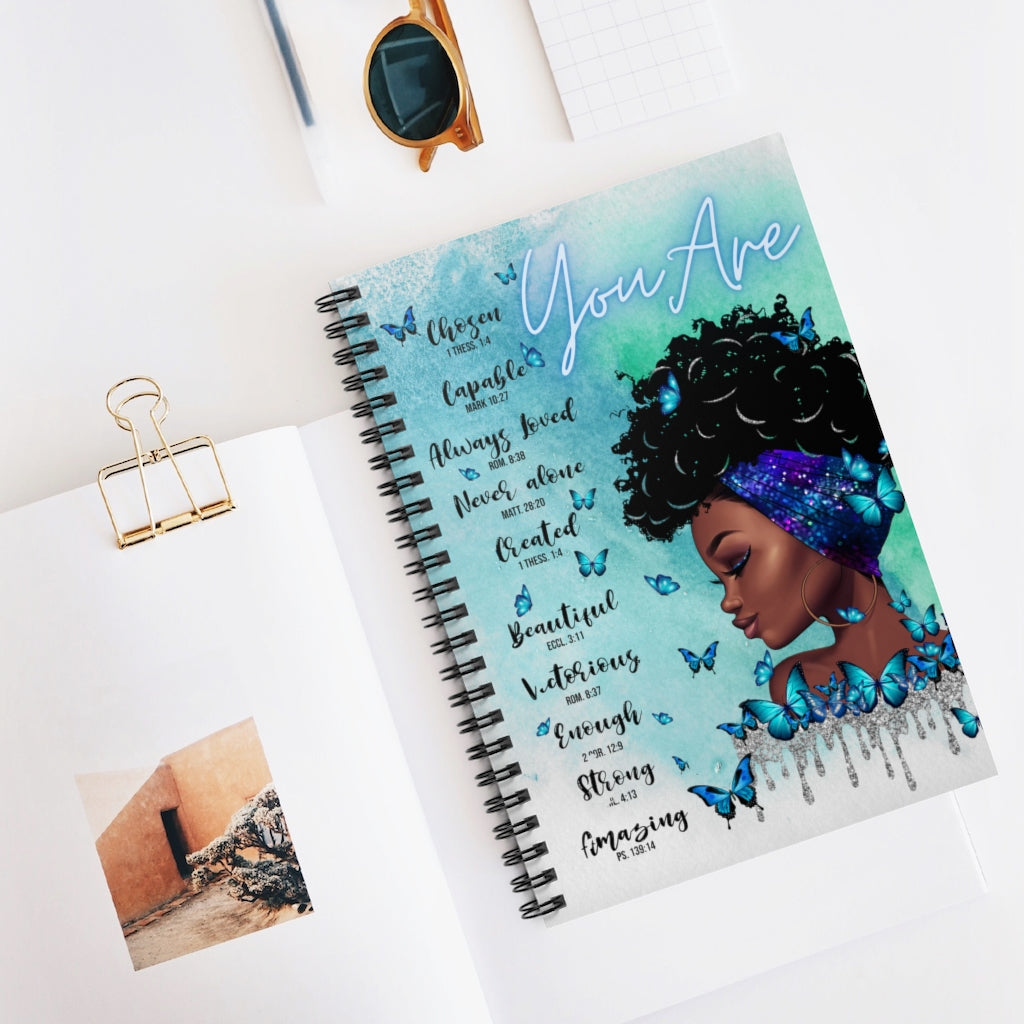 You Are
Chosen
1 THESS. 1:4
Capable
MARK 10:27
Always Loved
ROM. 8:38
Never alone
MATT. 28:20
Created
1 THESS. 1:4
Beautiful
ECCL. 3:11
Victorious
ROM. 8:37
Enough
2 COR. 12:9
Strong
4:13
Amazing
PS. 139:14